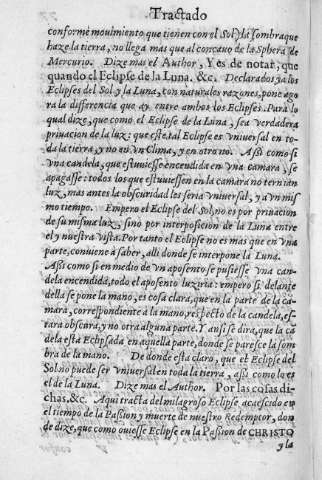 Tractado
conforme mouimiento que tienen con el Sol, y la sombra que
haze la tierra, no llega mas que al concauo de la Sphera de
Mercurio. Dize mas el Author, Y es de notar, que
quando el Eclipse de la Luna. &c. Declarados ya los
Eclipses del Sol y la Luna, con naturales razones, pone ago
ra la differencia que ay entre ambos los Eclipses. Para lo
qual dize, que como el Eclipse de la Luna, sea verdadera
priuacion de la luz: que este tal Eclipse es vniuersal en to-
da la tierra, y no en vn Clima, y en otro no. Assi como si
vna candela, que estuuiesse encendida en vna camara, se
apagasse: todos los que estuuiessen en la camara no ternian
luz, mas antes la obscuridad les seria vniuersal, y a vn mis
mo tiempo. Empero el Eclipse del Sol, no es por priuacion
de su misma luz, sino por interposicion de la Luna entre
el y nuestra vista. Por tanto el Eclipse no es mas que en vna
parte, conuiene á saber, alli donde se interpone la Luna.
Assi como si en medio de vn aposento se pusiesse vna can-
dela encendida, todo el aposento luziria: empero si delante
della se pone la mano, es cosa clara, que en la parte de la ca-
mara, correspondiente á la mano, respecto de la candela, es-
tara obscura, y no otra alguna parte. Y ansi se dira, que la cã
dela esta Eclypsada en aquella parte, donde se paresce la som
bra de la mano. De donde esta claro, que el Eclypse del
Sol no puede ser vniuersal en toda la tierra, assi como lo es
el de la Luna. Dize mas el Author. Por las cosas di-
chas. &c. Aqui tracta del milagroso Eclipse acaescido en
el tiempo de la Passion y muerte de nuestro Redemptor, don
de dize, que como ouiesse Eclipse en la Passion de CHRISTO
y la